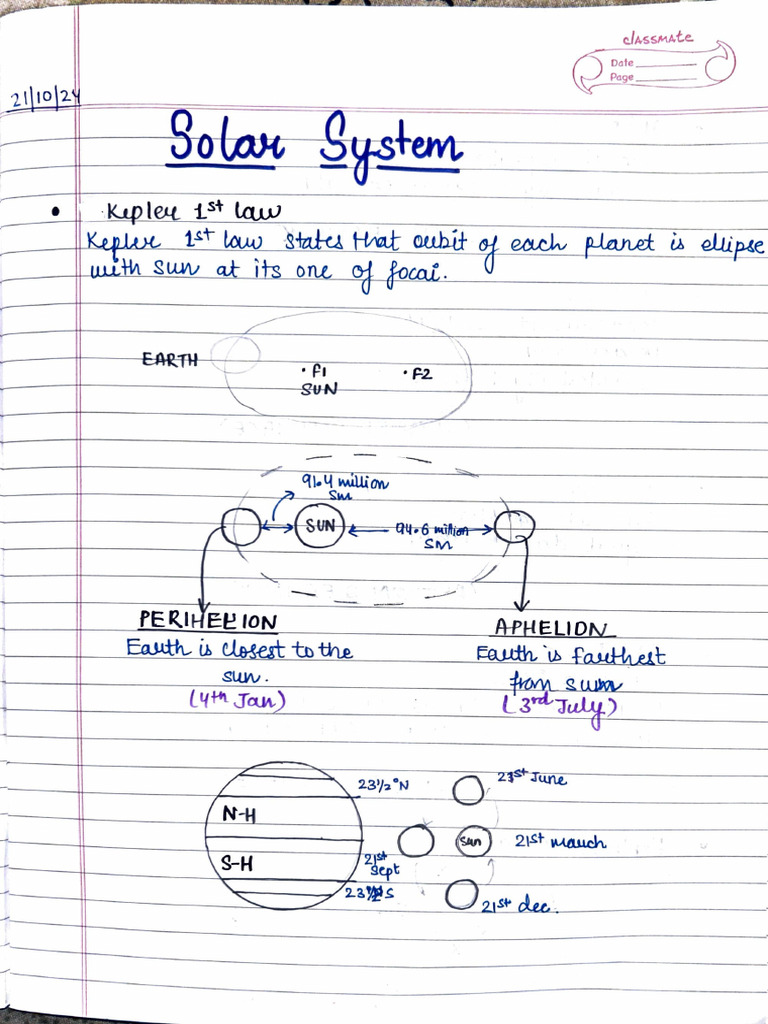 classmate
Date
Page
21/10/24
Solar System
• Kepler 1st law
Kepler 1st law states that orbit of each planet is ellipse
with sun at its one of focai.
EARTH
• F1
• F2
SUN
91.4 million
sm
SUN
94.6 million
SM
PERIHELION
APHELION
Earth is closest to the
sun.
(4th Jan)
Earth is farthest
from sum
(3rd July)
23½°N
N-H
S-H
21st
Sept
23½ S
21st June
sun
21st march
21st dec.